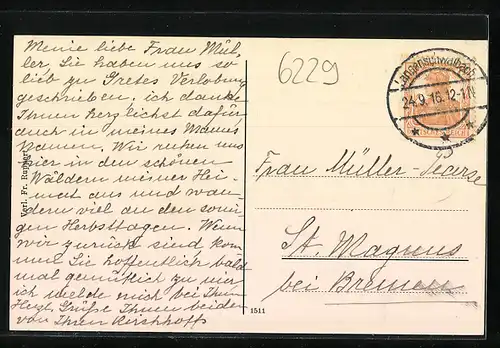 Meine liebe Frau Mül-
ler, Sie haben uns so
lieb zu Gretes Verlobung
geschrieben. ich danke
Ihnen herzlichst dafür
auch in meines Manns
Namen. Wir ruhen uns
hier in den schönen
Wäldern meiner Hei-
mat aus und wan-
dern viel an den sonni-
gen Herbsttagen. Wenn
wir zurück sind kom
men Sie hoffentlich bald
mal gemütlich zu mir
ich melde mich bei Ihnen
Herzl. Grüße Ihnen beiden
von Ihren Kirchhoffs
Verl. Fr.
6229
Langenschwalbach
24.9.16.12-1N
Frau Müller-
St. Magnus
bei Bremen
1511